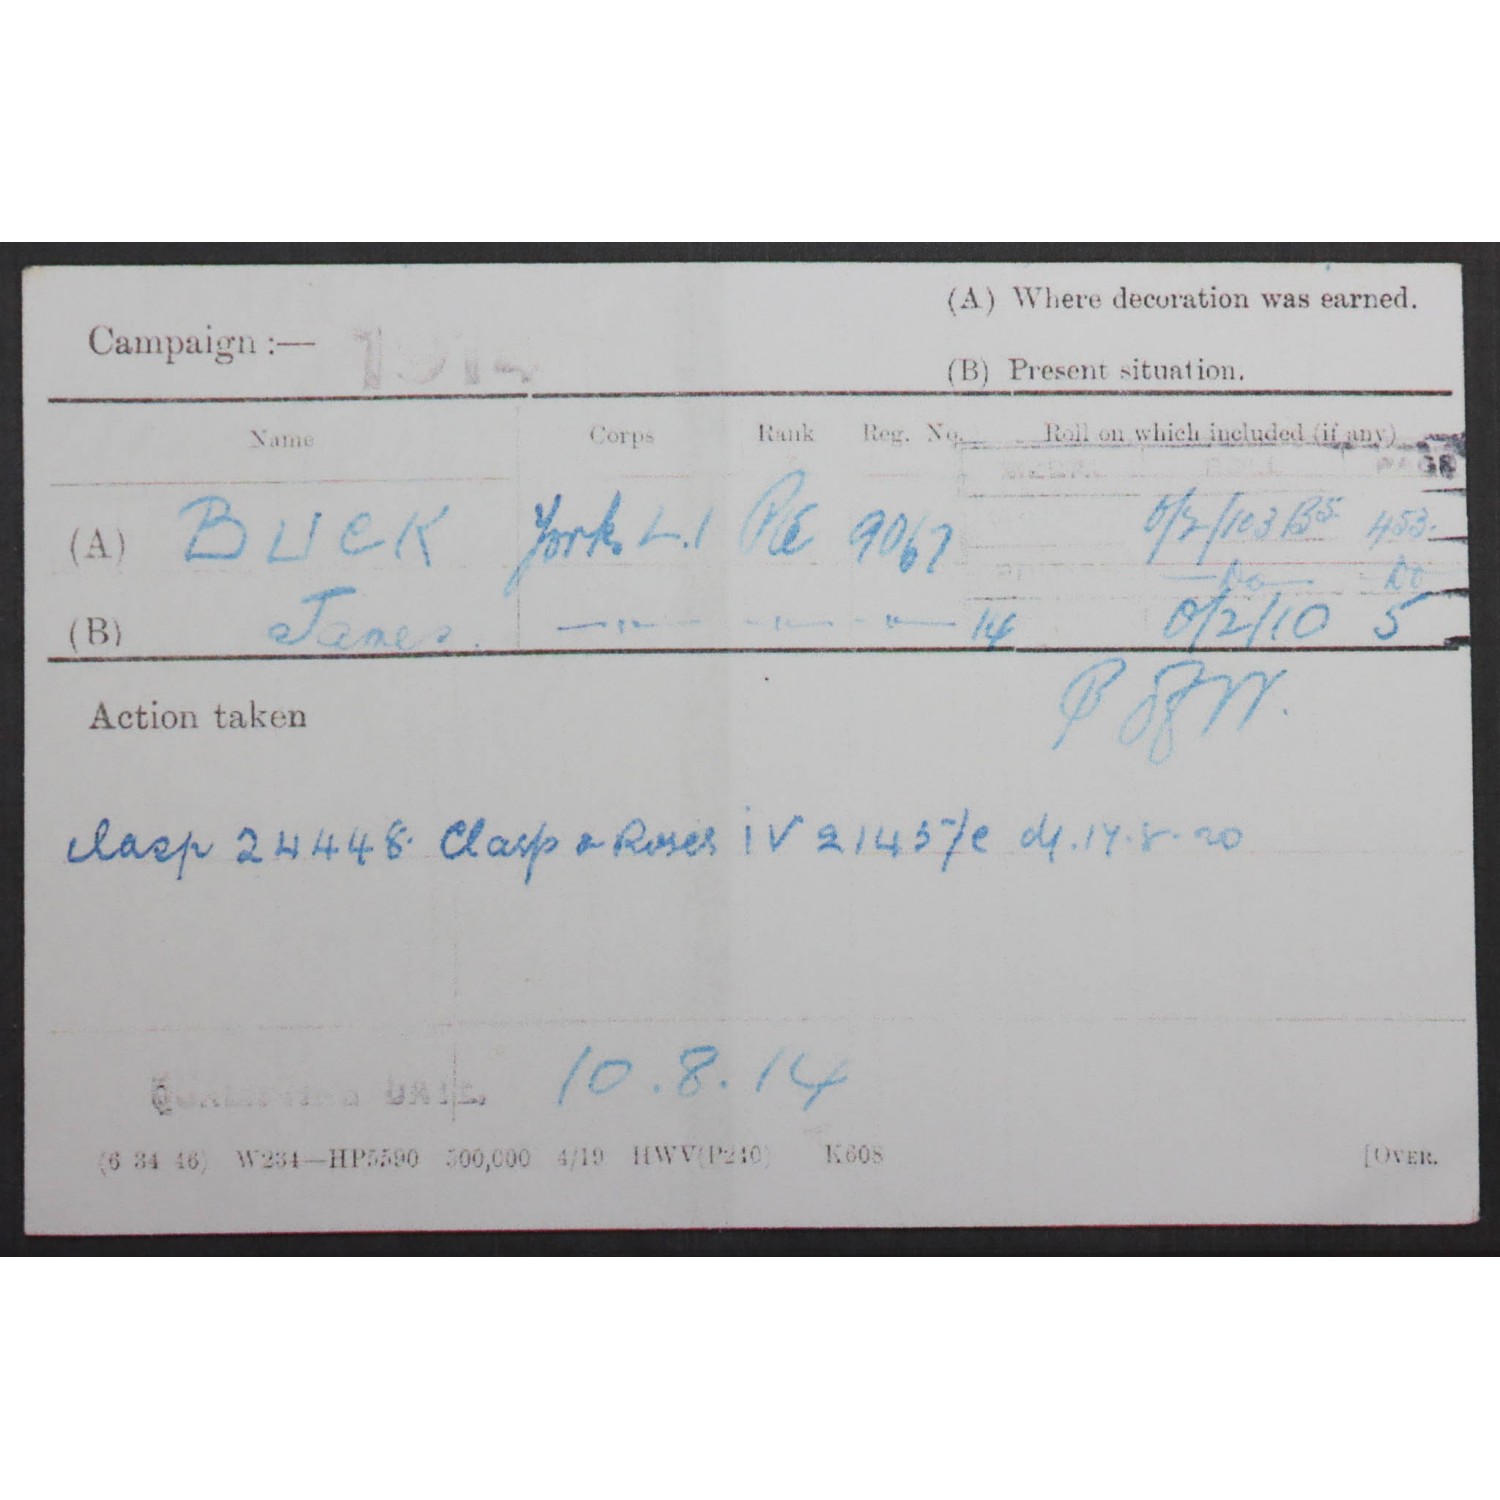 (A) Where decoration was earned.
Campaign :— 1914
(B) Present situation.
Name Corps Rank Reg. No. Roll on which included (if any)
MEDAL ROLL PAGE
(A) BUCK York. L.I Pte 9067 O/2/103 B5 453.
Do Do
(B) James. —"— —"— —"— 14 O/2/10 5
P of W.
Action taken
Clasp 24448. Clasp & Roses IV 2145/E d/. 17.8.20
QUALIFYING DATE. 10.8.14
(6 34 46) W234—HP5590 500,000 4/19 HWV(P240) K608 [OVER.